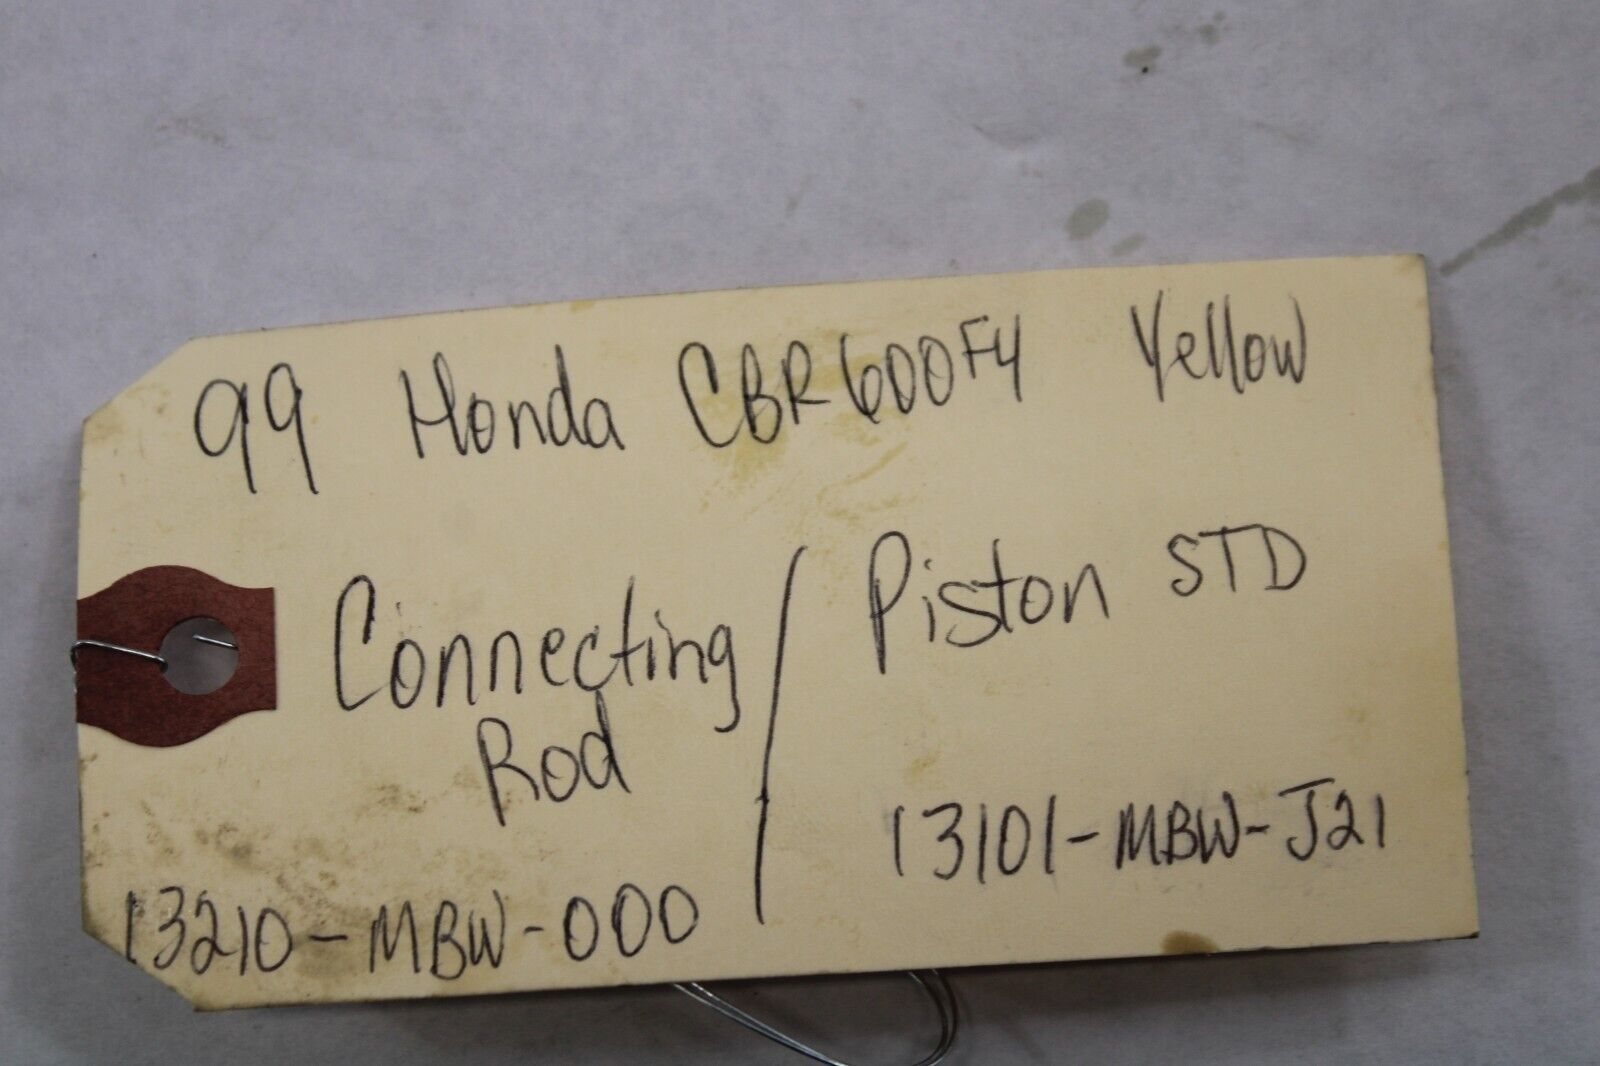 99 Honda CBR600F4 Yellow
Connecting Rod / Piston STD
13210-MBW-000
13101-MBW-J21